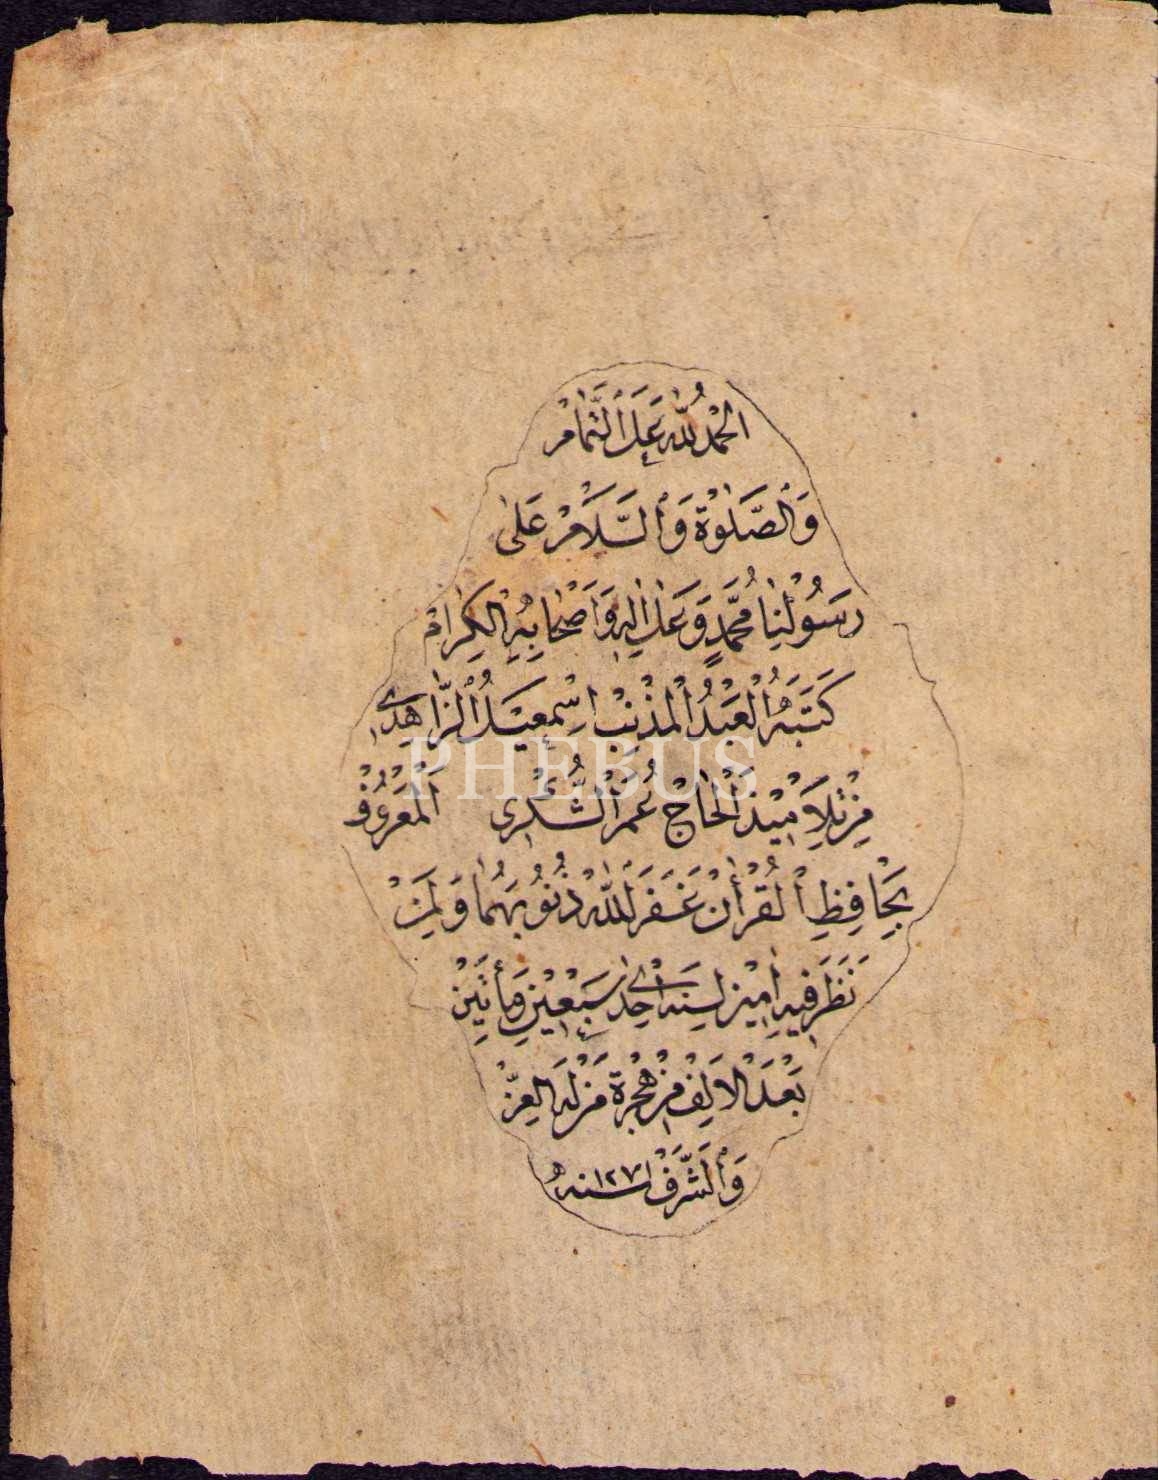 الحمد لله على التمام
وَالصَّلٰوةُ وَالسَّلَامُ عَلٰى
رَسُولِنَا مُحَمَّدٍ وَعَلٰى اٰلِهٖ وَاَصْحَابِهِ الْكِرَامْ
كَتَبَهُ الْعَبْدُ الْمُذْنِبْ اِسْمٰعِيلُ الزَّاهِدِى
مِنْ تَلَامِيذِ الْحَاجْ عُمَرَ الشُّكْرِى الْمَعْرُوفْ
بِحَافِظِ الْقُرْاٰنْ غَفَرَ اللّٰهُ ذُنُوبَهُمَا وَلِمَنْ
نَظَرَ فِيهِ اٰمِينْ لِسَنَةِ اِحْدٰى سَبْعِينَ مِأَتَيْنْ
بَعْدَ الْاَلِفْ مِنْ هِجْرَةِ مَنْ لَهُ الْعِزّ
وَالشَّرَفْ سنه ١٢٧١
PHEBUS